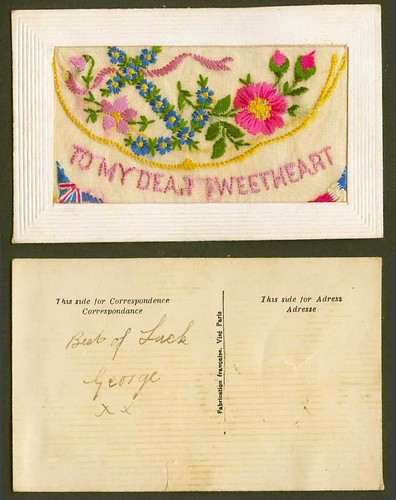 TO MY DEAR SWEETHEART
This side for Correspondence
Correspondance
This side for Adress
Adresse
Fabrication française. Visé Paris
Best of Luck
George
x x